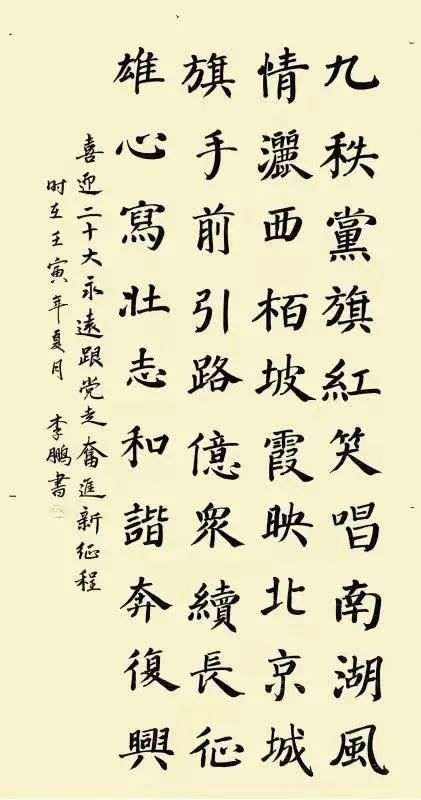 九秩黨旗紅笑唱南湖風
情灑西栢坡霞映北京城
旗手前引路億衆續長征
雄心寫壯志和諧奔復興
喜迎二十大永遠跟党走奮進新征程
时在壬寅年夏月 李鵬書